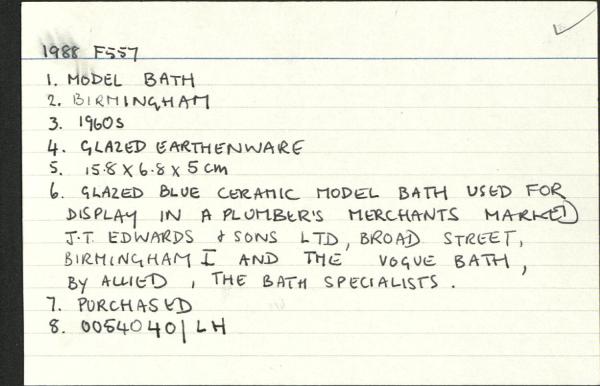 1988 F557
1. MODEL BATH
2. BIRMINGHAM
3. 1960s
4. GLAZED EARTHENWARE
5. 15.8 X 6.8 X 5 cm
6. GLAZED BLUE CERAMIC MODEL BATH USED FOR
DISPLAY IN A PLUMBER'S MERCHANTS MARKED
J.T. EDWARDS & SONS LTD, BROAD STREET,
BIRMINGHAM I AND THE VOGUE BATH,
BY ALLIED, THE BATH SPECIALISTS.
7. PURCHASED
8. 0054040 | LH